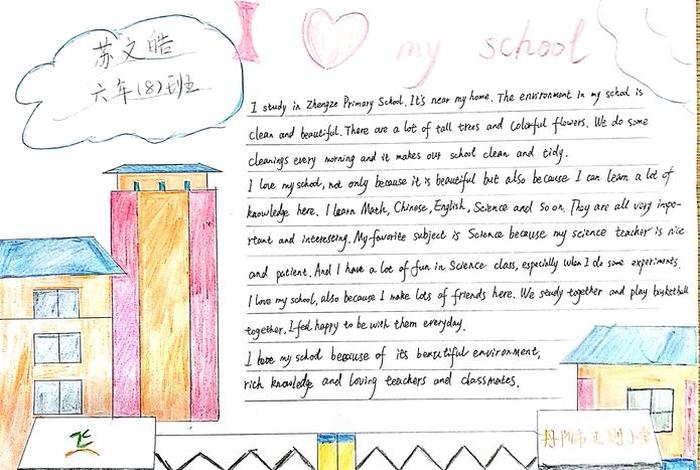 苏文皓
六年(8)班
I my school
I study in Zhengze Primary School. It's near my home. The environment in my school is
clean and beautiful. There are a lot of tall trees and colorful flowers. We do some
cleanings every morning and it makes our school clean and tidy.
I love my school, not only because it is beautiful but also because I can learn a lot of
knowledge here. I learn Math, Chinese, English, Science and so on. They are all very impo-
rtant and interesting. My favorite subject is Science because my science teacher is nice
and patient. And I have a lot of fun in Science class, especially when I do some experiments.
I love my school, also because I make lots of friends here. We study together and play basketball
together. I feel happy to be with them everyday.
I love my school because of its beautiful environment,
rich knowledge and loving teachers and classmates.
丹阳市正则小学